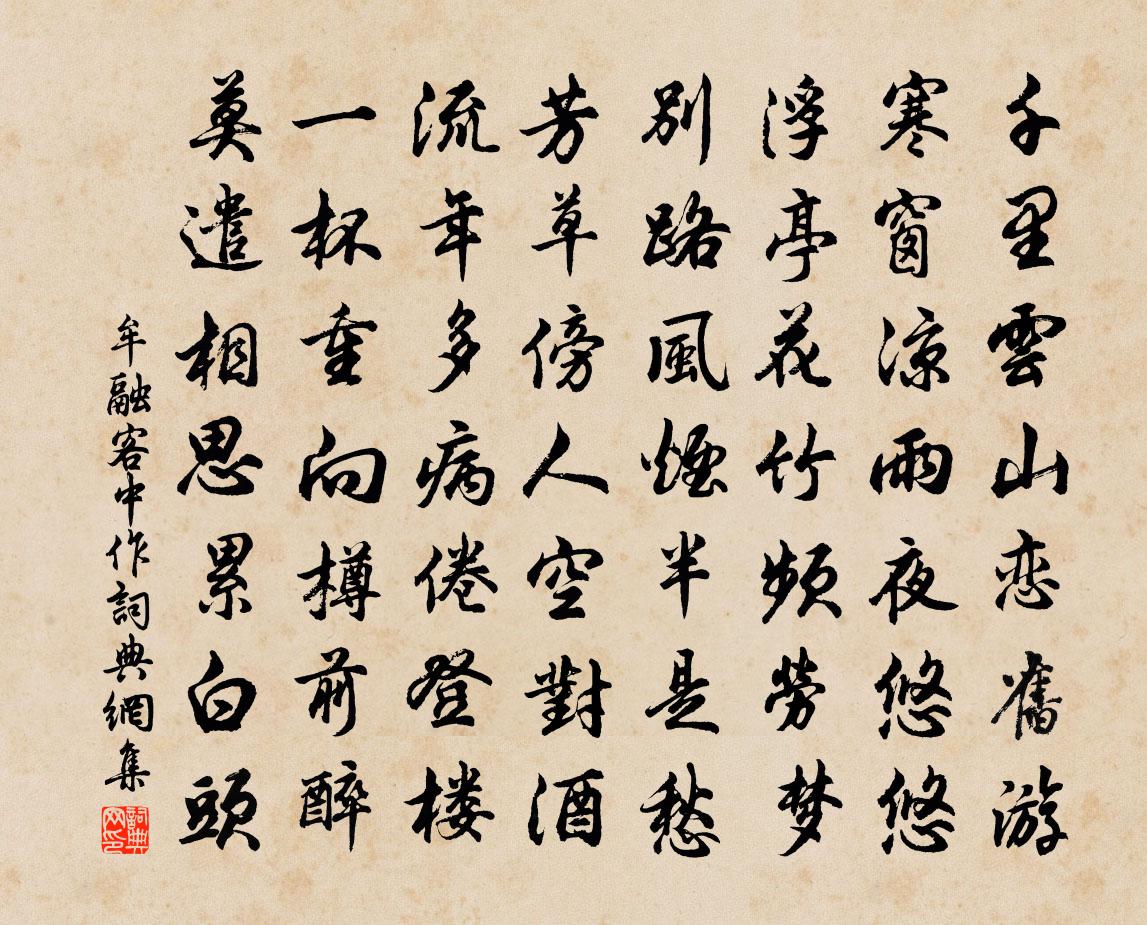 千里雲山恋舊游
寒窗涼雨夜悠悠
浮亭花竹頻勞梦
別路風煙半是愁
芳草傍人空對酒
流年多病倦登楼
一杯重向樽前醉
莫遣相思累白頭
牟融客中作詞典網集
詞典网印